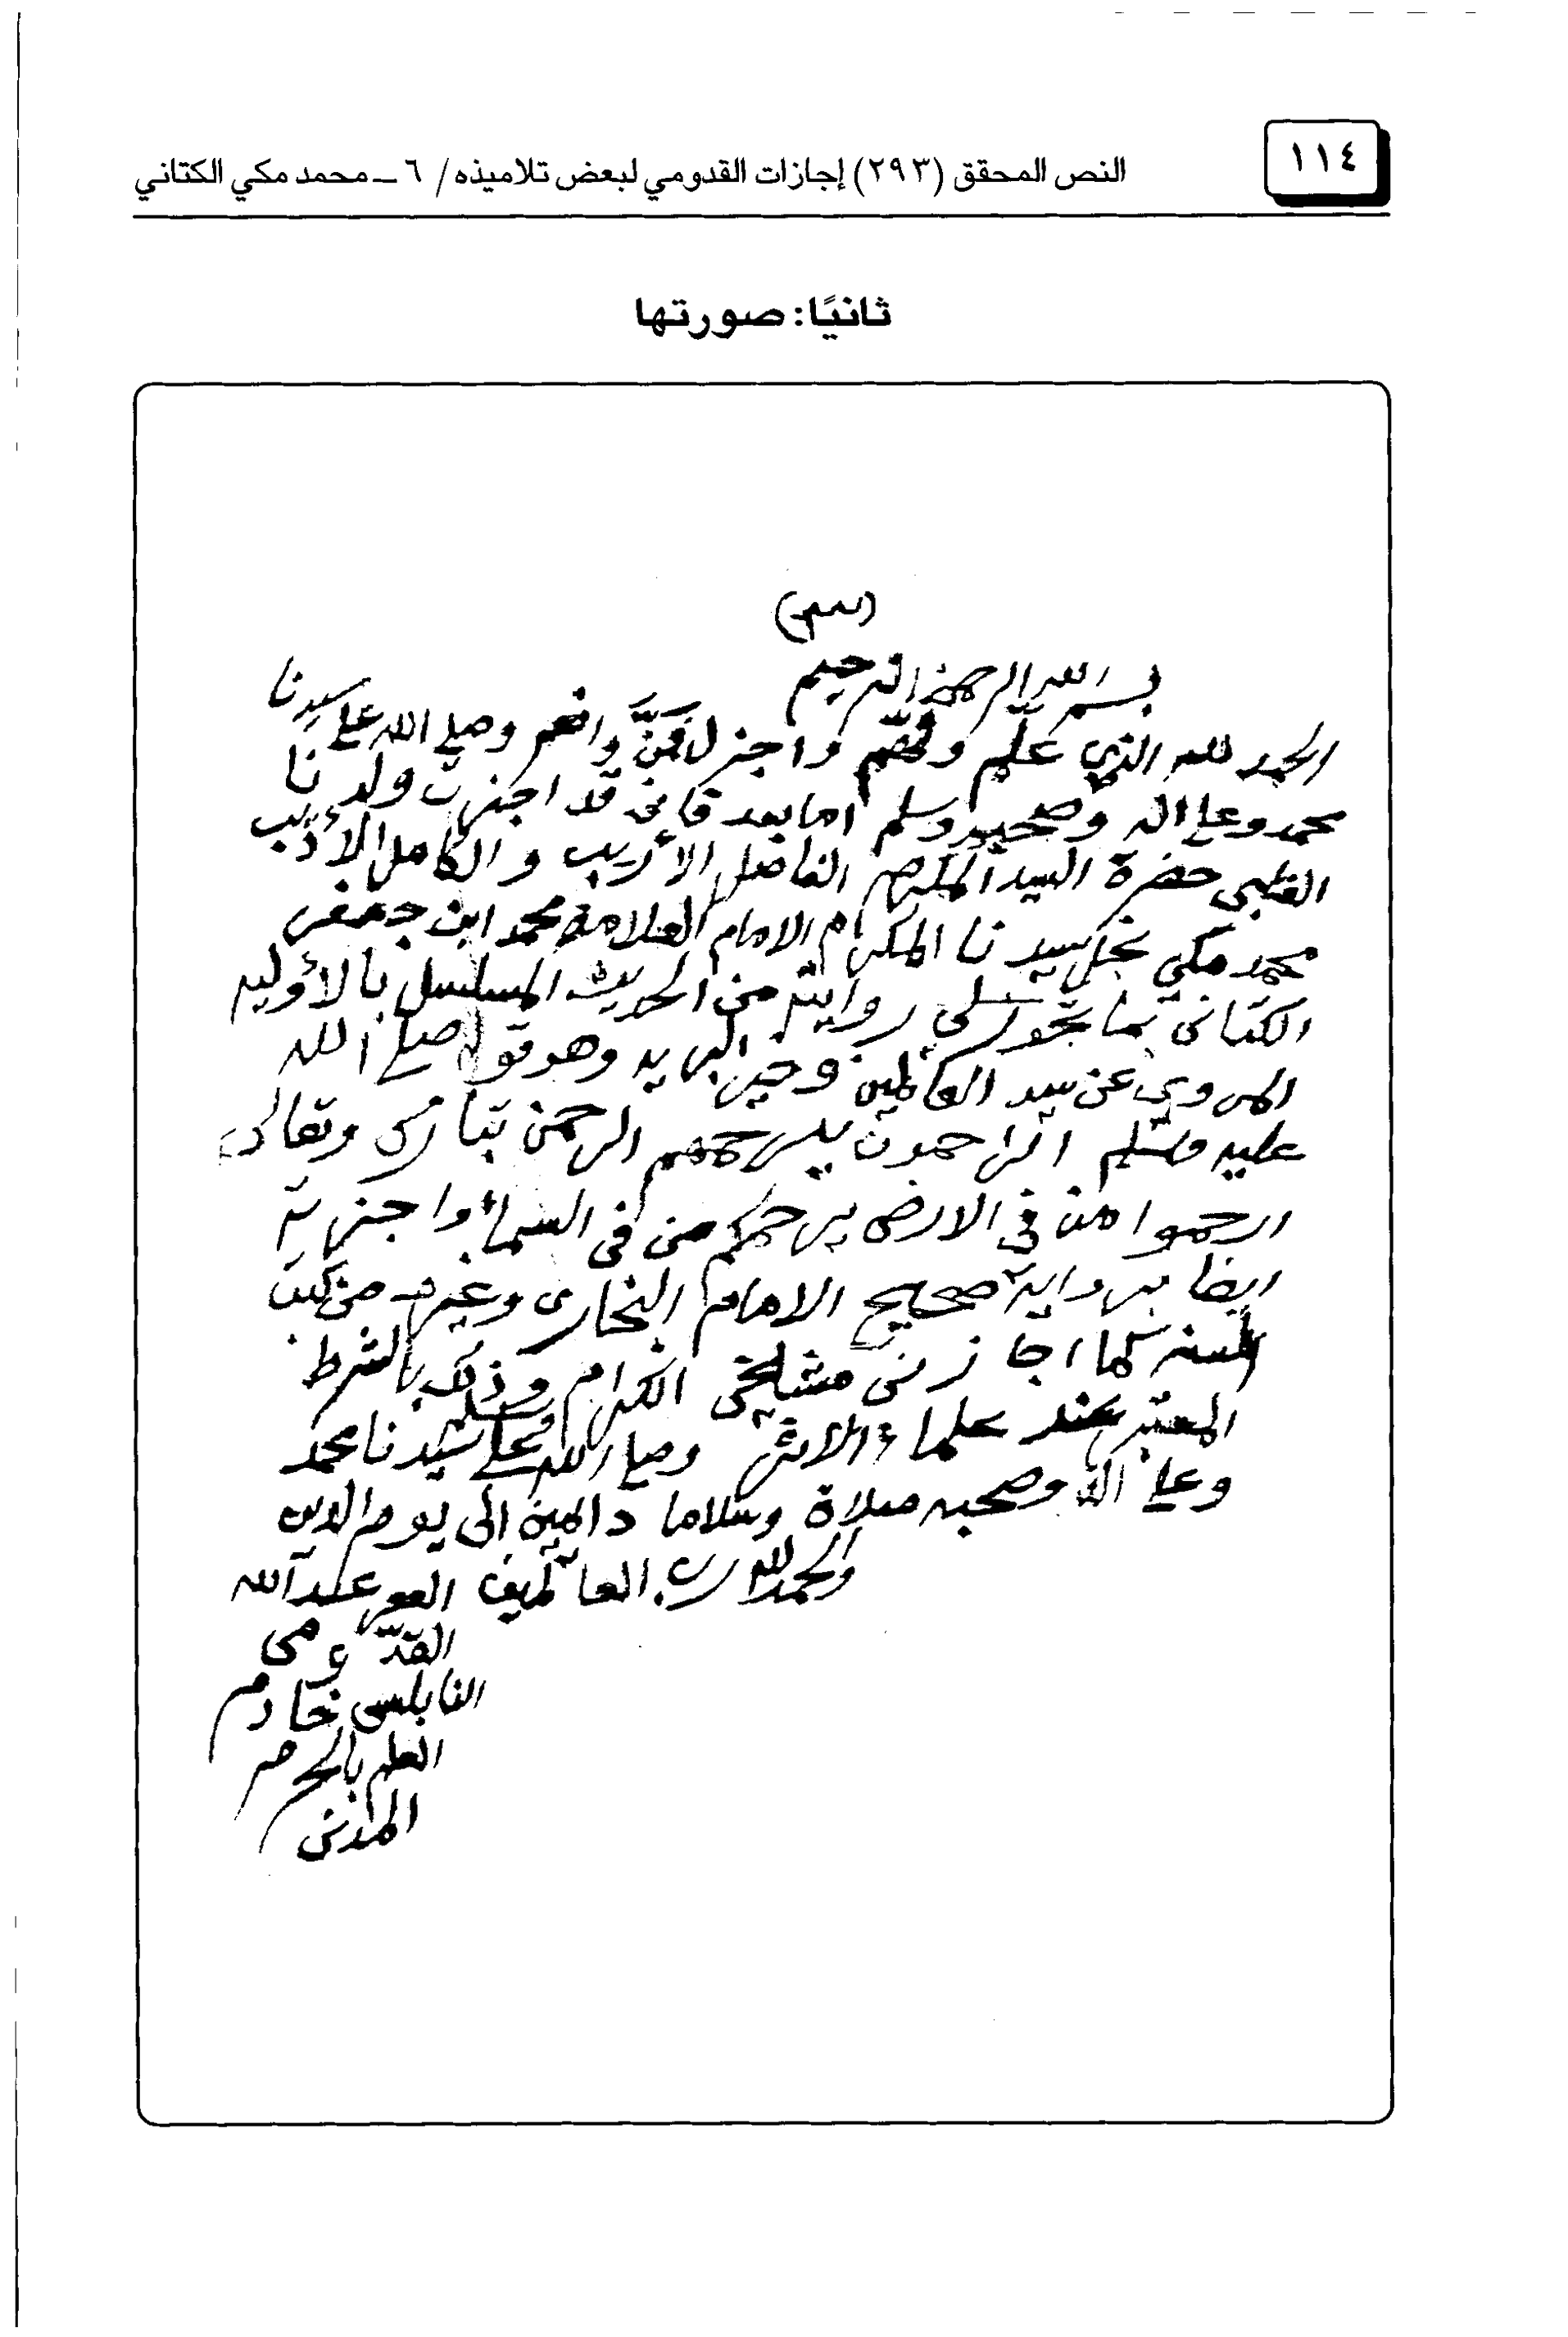 ١١٤
النص المحقق (٢٩٣) إجازات القدومي لبعض تلاميذه / ٦ ـ محمد مكي الكتاني
ثانيًا: صورتها
بسم الله الرحمن الرحيم
الحمد لله الذي علّم وفهّم واجزل فمنَّ وانعم وصلى الله على سيدنا
محمد وعلى اله وصحبه وسلم اما بعد فانى قد اجزت ولدنا
القلبي حضرة السيد الفاضل الأريب والكامل الأديب
محمد مكي نجل سيدنا المكرم الامام العلامة محمد ابن جعفر
الكتانى بما تجوز لى روايته من الحديث المسلسل بالأوليه
المروي عن سيد العالمين وخير البريه وهو قوله صلى الله
عليه وسلم الراحمون يرحمهم الرحمن تبارك وتعالى
ارحموا من في الارض يرحمكم من فى السماء واجزته
ايضا برواية صحيح الامام البخارى وغيره من كتب
السنه كما اجازنى مشايخى الكرام وذلك بالشرط
المعتبر عند علماء الاثر وصلى الله وسلم على سيدنا محمد
وعلى اله وصحبه صلاة وسلاما دائمين الى يوم الدين
والحمد لله رب العالمين عبدالله
القدّومى
النابلسى خادم
العلم بالحرم
المدنى